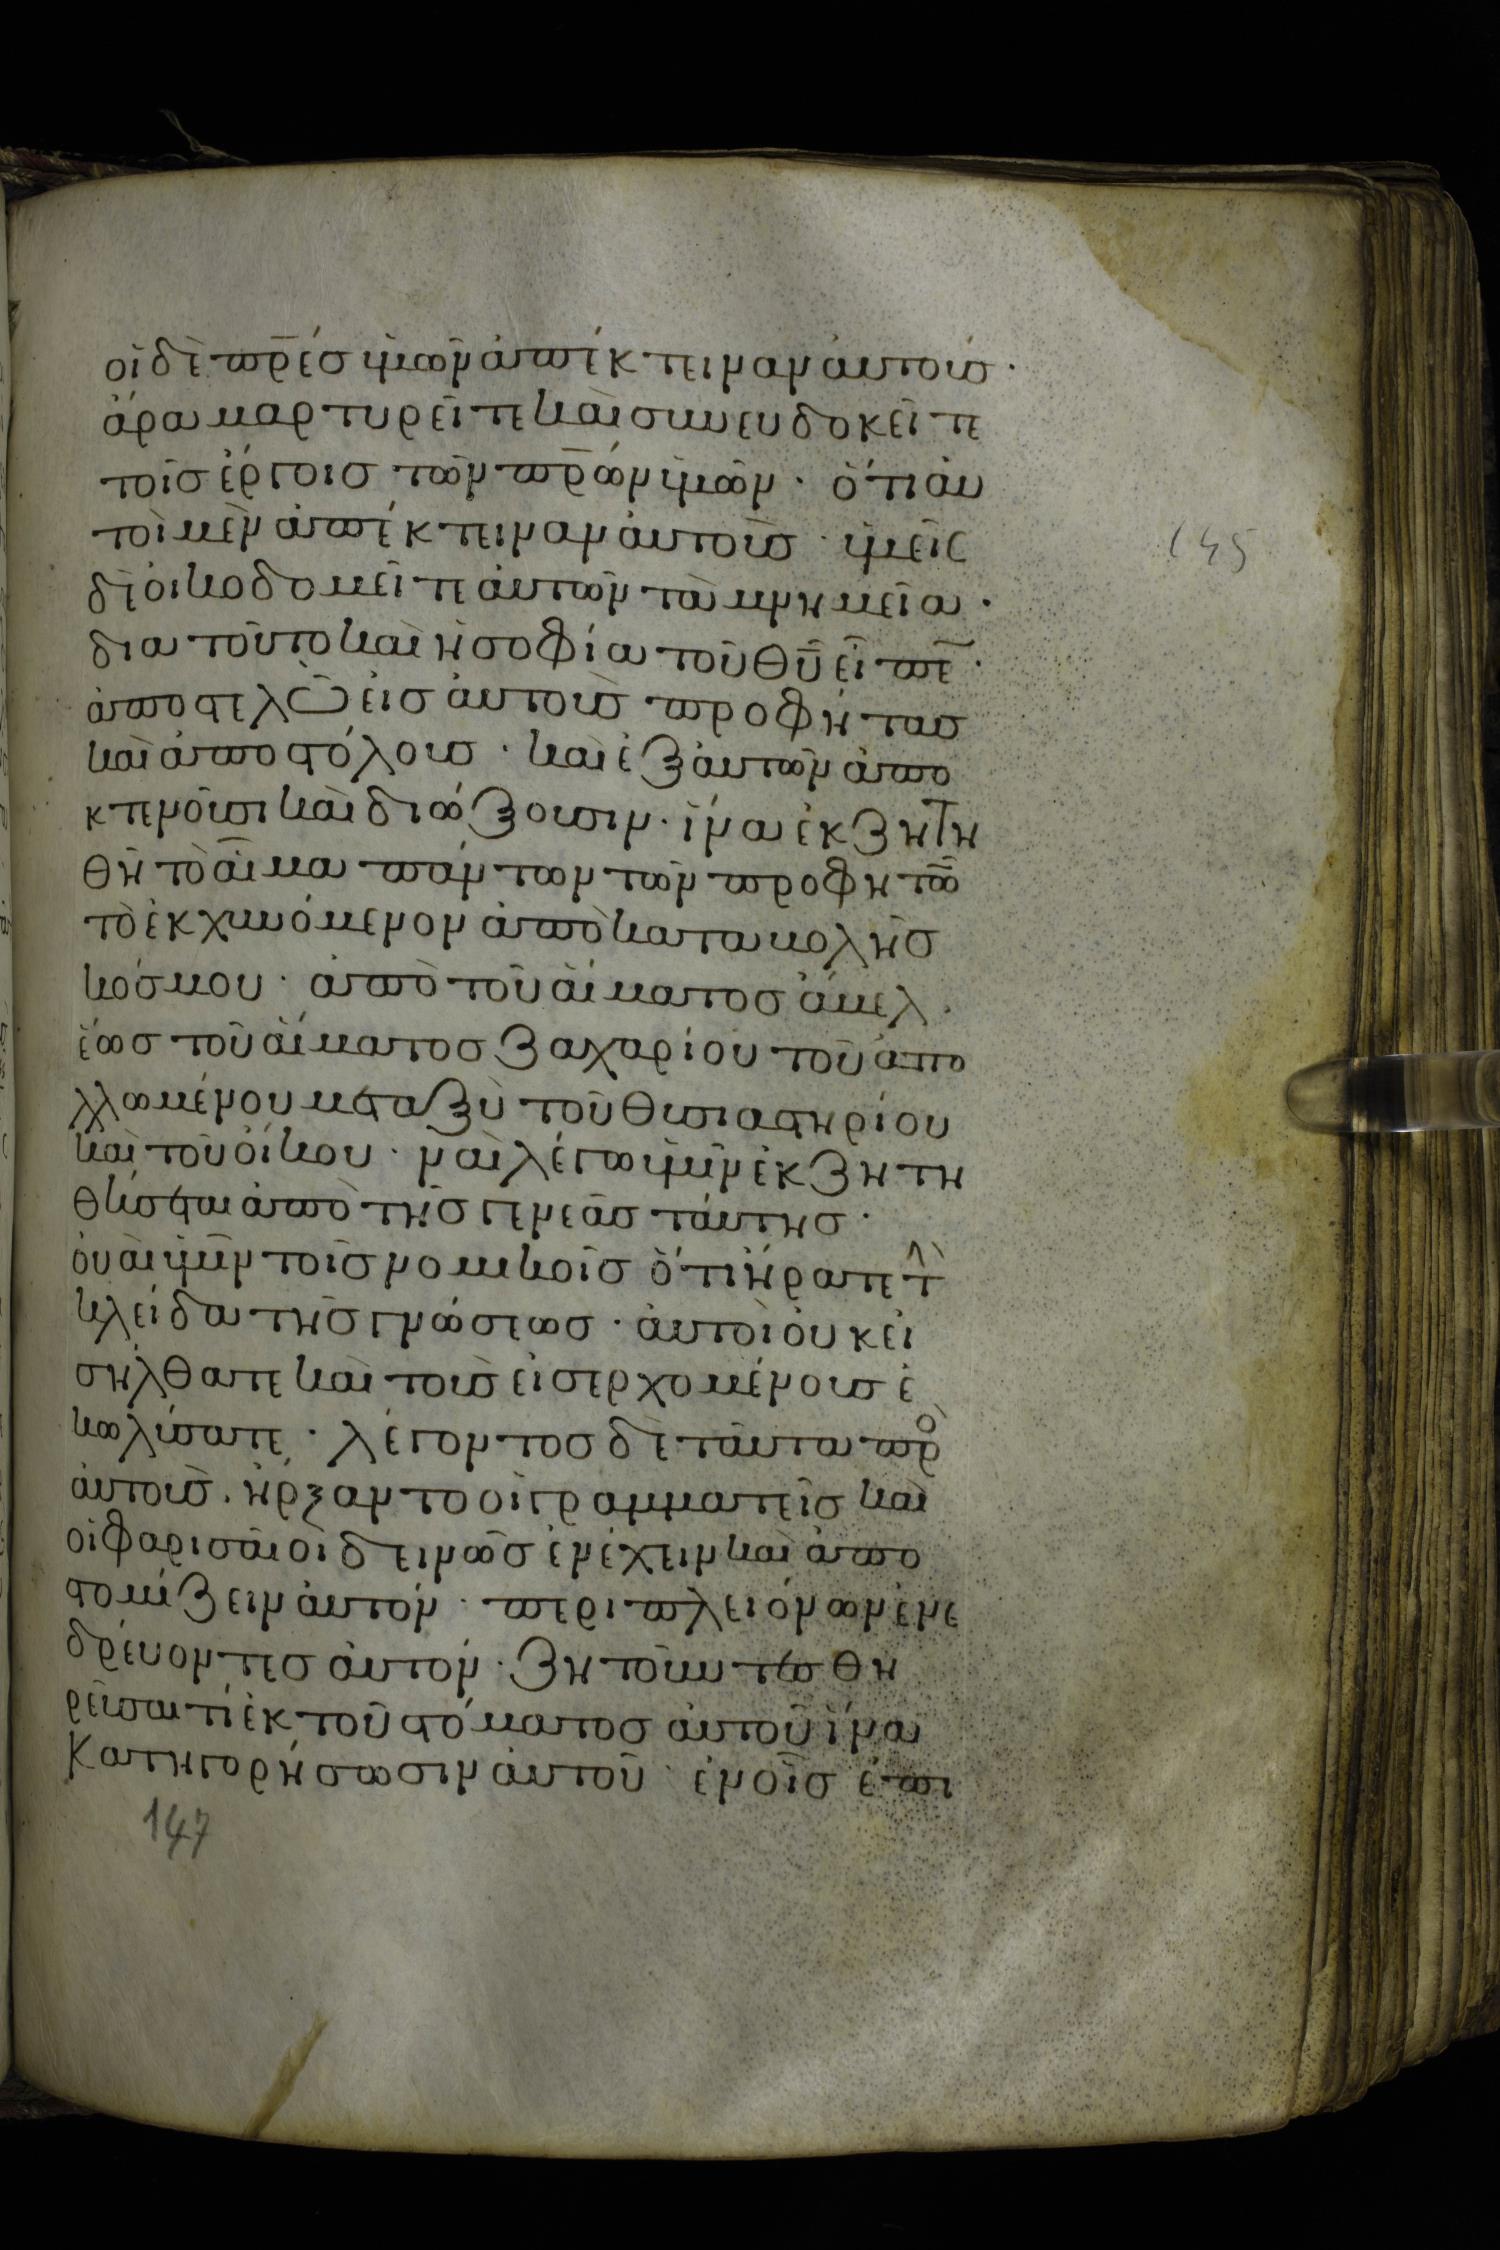 οἱ δὲ πρ̅έσ ὑμῶν ἀπέκτειναν ἀυτούσ·
ἄρα μαρτυρεῖτε καὶ συνευδοκεῖτε
τοῖσ ἔργοισ τῶν πρ̅ῶν ὑμῶν· ὅτι ἀυ
τοὶ μὲν ἀπέκτειναν ἀυτοὺσ· ὑμεῖς
δὲ ὀικοδομεῖτε ἀυτῶν τὰ μνημεῖα·
δια τοῦτο καὶ ἡ σοφία τοῦ θυ̅ εἶπε̅·
ἀποστελῶ εἰσ ἀυτοὺσ προφήτασ
καὶ ἀποστόλουσ· καὶ ἐξ ἀυτῶν ἀπο
κτενοῦσι καὶ διώξουσιν· ἵνα ἐκζητη
θῆ τὸ αἷμα πάντων τῶν προφητῶ̅
τὸ ἐκχυνόμενον ἀπὸ καταβολῆσ
κόσμου· ἀπὸ τοῦ ἁίματοσ ἄβελ·
ἕωσ τοῦ ἁίματοσ ζαχαρίου τοῦ ἀπο
λλωμένου μεταξὺ τοῦ θυσιαστηρίου
καὶ τοῦ ὀίκου· ναὶ λέγω ὑμῖν ἐκζητη
θήσεται ἀπὸ τῆσ γενεᾶσ ταύτησ·
ὀυαὶ ὑμῖν τοῖσ νομικοῖσ ὅτι ἤρατε τὴ
κλείδα τῆσ γνώσεωσ· ἀυτοὶ ὀυκ ἐι
σήλθατε καὶ τοὺσ ἐισερχομένουσ ἐ
κωλύσατε· λέγοντοσ δὲ ταῦτα πρὸ
ἀυτοὺσ· ἤρξαντο οἱ γραμματεῖσ καὶ
οἱ φαρισαῖοι δεινῶσ ἐνέχειν καὶ ἀπο
στομίζειν ἀυτόν· περι πλειόνων ἐνε
δρέυοντεσ ἀυτόν· ζητοῦντεσ θη
ρεῦσαι τί ἐκ τοῦ στόματοσ ἀυτοῦ ἵνα
Κατηγορήσωσιν ἀυτοῦ· ἐν οἷσ ἐπι
147
145